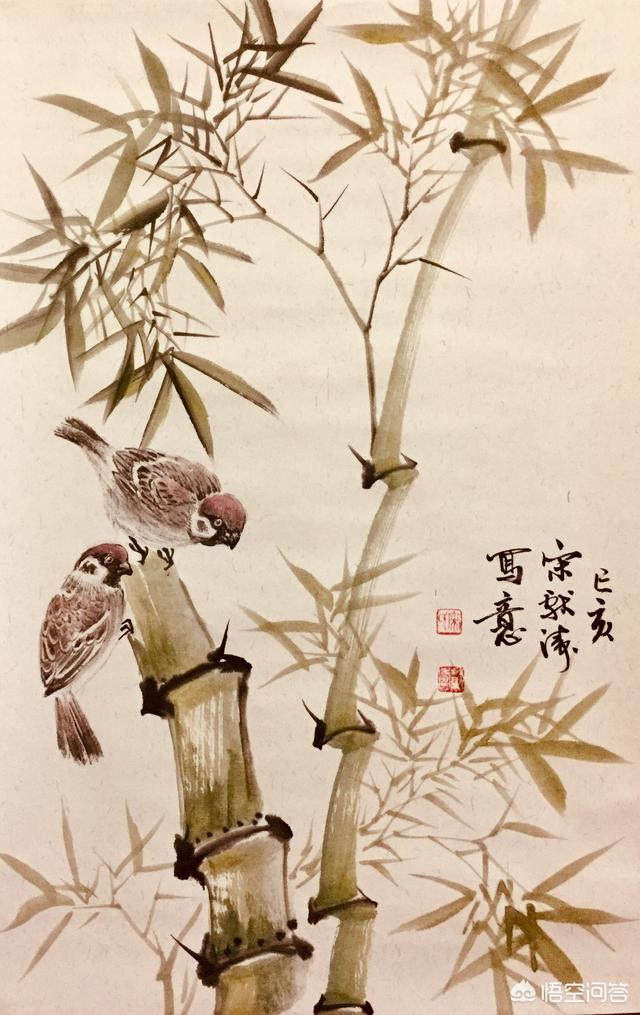 己亥
宋献涛
写意
悟空问答